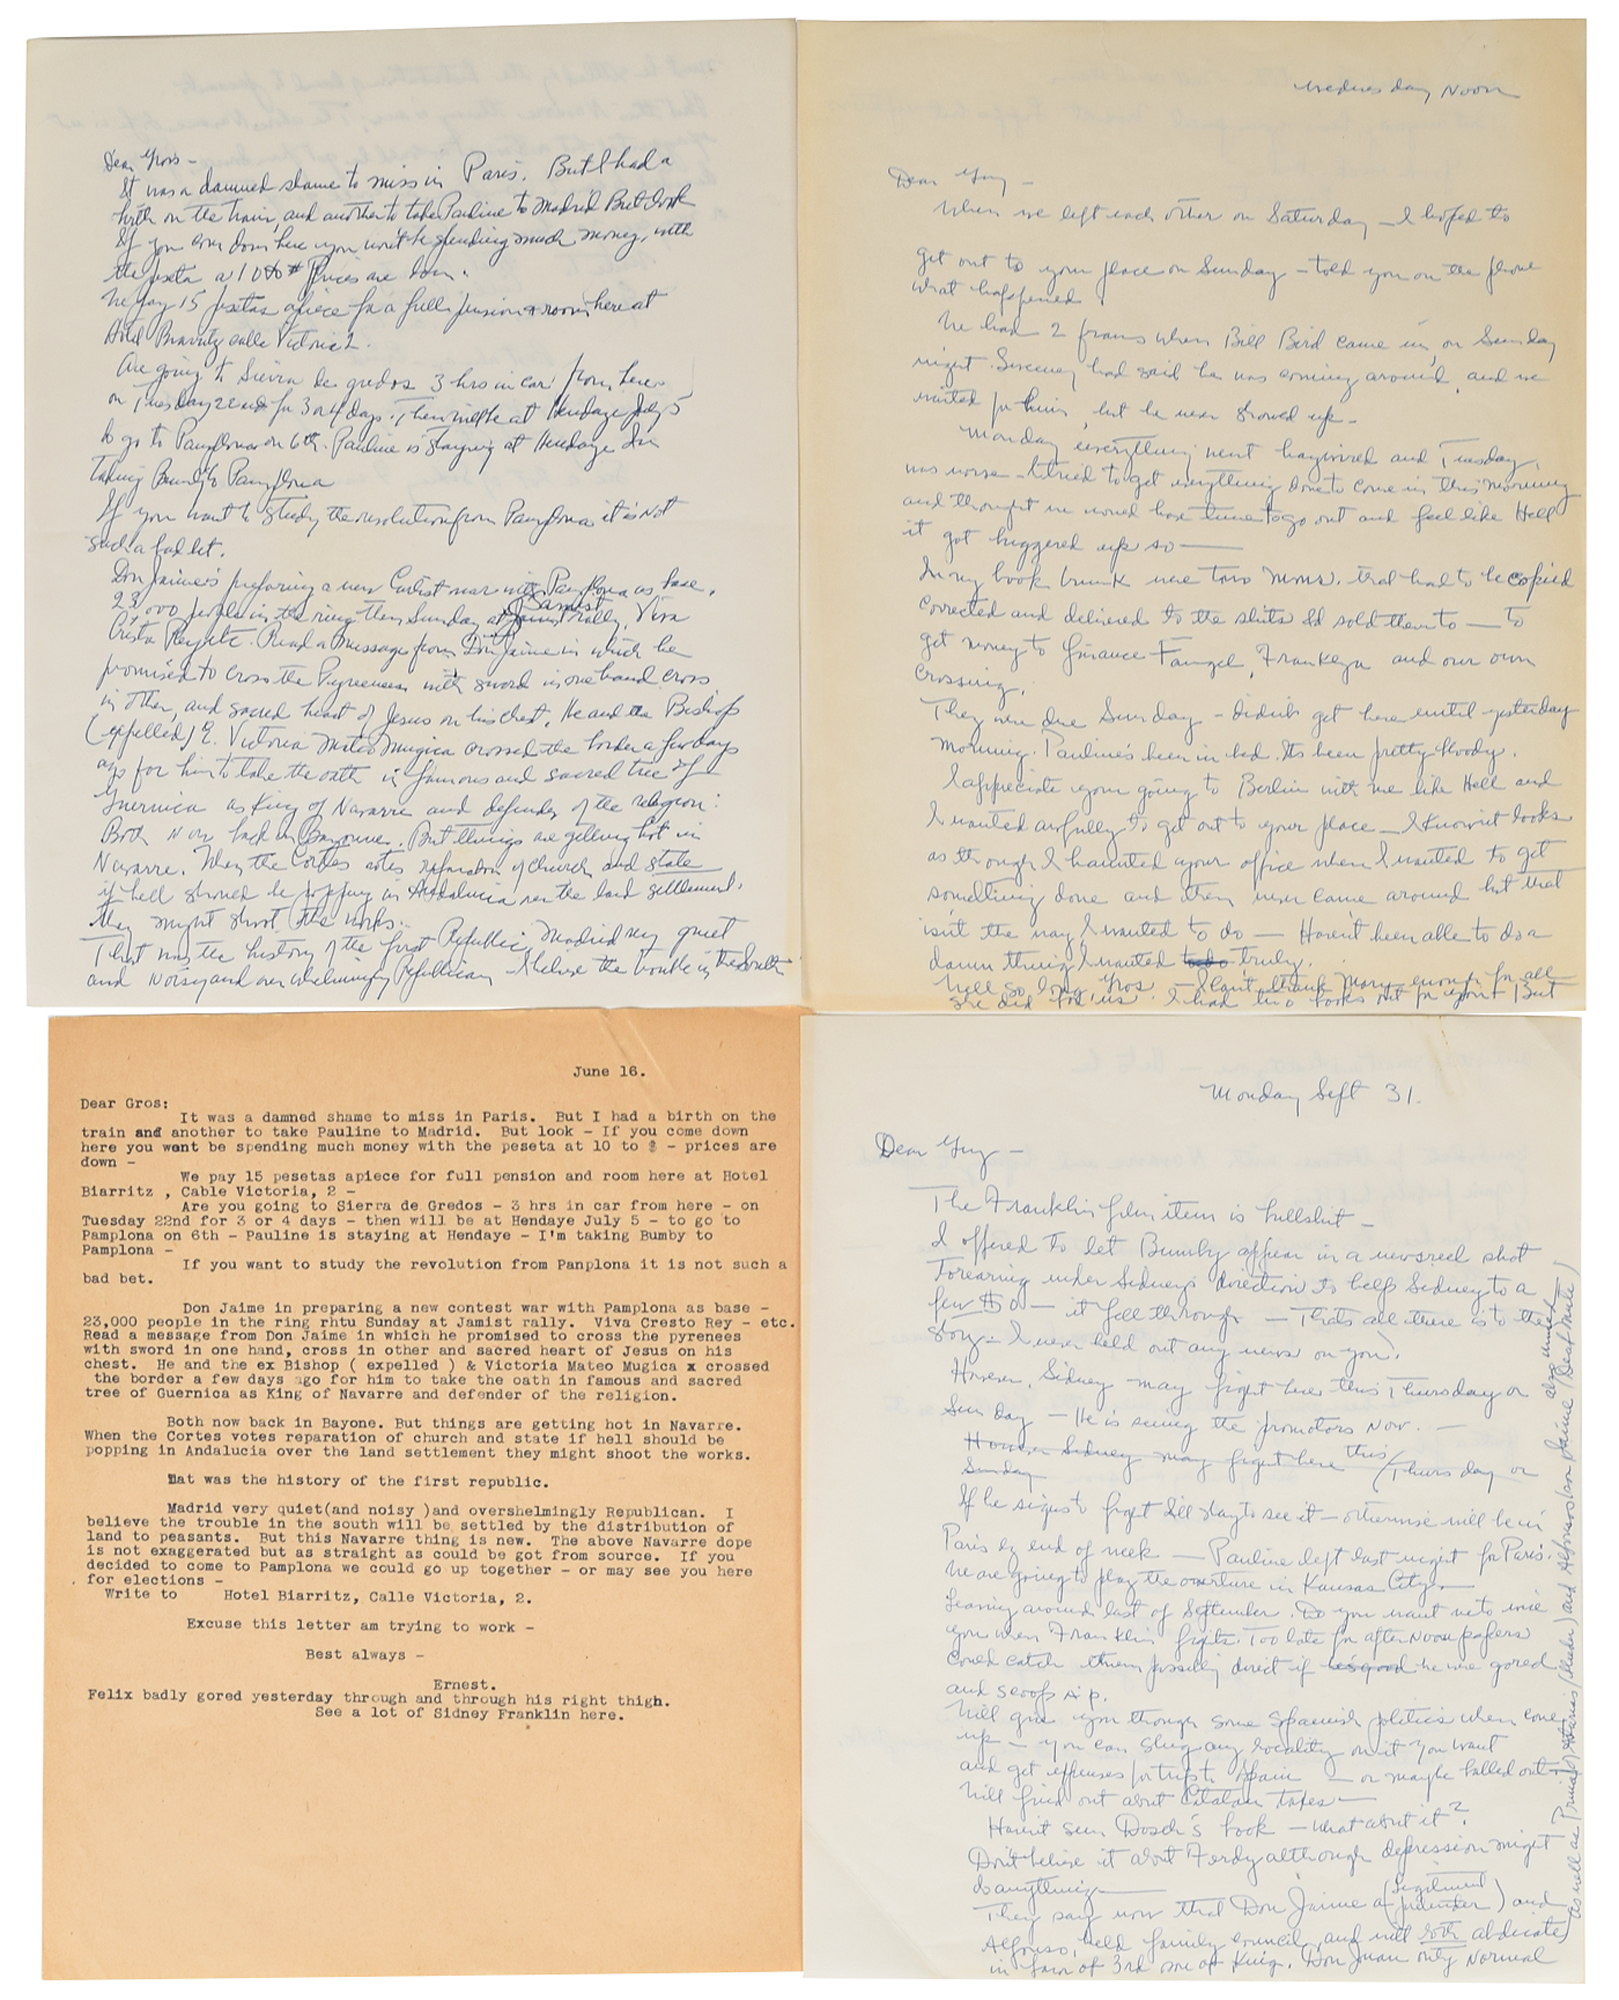 Dear Gros -
It was a damned shame to miss in Paris. But I had a
birth on the train, and another to take Pauline to Madrid But look
If you come down here you wont be spending much money, with
the peseta at 10 to $ Prices are down.
We pay 15 pesetas apiece for a full pension & room here at
Hotel Biarritz calle Victoria 2.
Are going to Sierra de gredos 3 hrs in car from here
on Tuesday 22nd for 3 or 4 days. Then will be at Hendaye July 5
to go to Pamplona on 6th. Pauline is staying at Hendaye Im
taking Bumby to Pamplona
If you want to study the revolution from Pamplona it is not
such a bad bet.
Don Jaime's preparing a new Carlist war with Pamplona as base.
23,000 people in the ring there Sunday at Jaimist rally, Viva
Cristo Rey etc. Read a message from Don Jaime in which he
promised to cross the Pyrenees with sword in one hand cross
in other, and sacred heart of Jesus on his chest. He and the Bishop
(expelled) of Victoria Mateo Mugica crossed the border a few days
ago for him to take the oath in famous and sacred tree of
Guernica as King of Navarre and defender of the religion:
Both now back in Bayonne. But things are getting hot in
Navarre. When the Cortes votes separation of church and state
if hell should be popping in Andalucia over the land settlement,
they might shoot the works.
That was the history of the first Republic, Madrid very quiet
and noisy and overwhelmingly Republican I believe the trouble in the South
Wednesday Noon
Dear Guy -
When we left each other on Saturday - I hoped to
get out to your place on Sunday - told you on the phone
what happened.
We had 2 francs when Bill Bird came in, on Sunday
night. Sweeney had said he was coming around, and we
waited for him, but he never showed up -
Monday everything went haywired and Tuesday
was worse - I tried to get everything done to come in this morning
and thought we would have time to go out and feel like Hell
it got buggered up so -
In my book trunk were two mms. that had to be copied
corrected and delivered to the shits Id sold them to - to
get money to finance Fangel, Franklyn and our own
crossing.
They were due Sunday - didn't get here until yesterday
morning. Pauline's been in bed. Its been pretty bloody.
I appreciate your going to Berlin with me like Hell and
I wanted awfully to get out to your place - I know it looks
as though I haunted your office when I wanted to get
something done and then never came around but that
isn't the way I wanted to do - Haven't been able to do a
damn thing I wanted to do truly.
Well so long Gros - I can't thank Mary enough for all
she did for us. I had two books out for you - But
June 16.
Dear Gros:
It was a damned shame to miss in Paris. But I had a birth on the
train and another to take Pauline to Madrid. But look - If you come down
here you wont be spending much money with the peseta at 10 to $ - prices are
down -
We pay 15 pesetas apiece for full pension and room here at Hotel
Biarritz , Cable Victoria, 2 -
Are you going to Sierra de Gredos - 3 hrs in car from here - on
Tuesday 22nd for 3 or 4 days - then will be at Hendaye July 5 - to go to
Pamplona on 6th - Pauline is staying at Hendaye - I'm taking Bumby to
Pamplona -
If you want to study the revolution from Panplona it is not such a
bad bet.
Don Jaime in preparing a new contest war with Pamplona as base -
23,000 people in the ring rhtu Sunday at Jamist rally. Viva Cresto Rey - etc.
Read a message from Don Jaime in which he promised to cross the pyrenees
with sword in one hand, cross in other and sacred heart of Jesus on his
chest. He and the ex Bishop ( expelled ) & Victoria Mateo Mugica x crossed
the border a few days ago for him to take the oath in famous and sacred
tree of Guernica as King of Navarre and defender of the religion.
Both now back in Bayone. But things are getting hot in Navarre.
When the Cortes votes reparation of church and state if hell should be
popping in Andalucia over the land settlement they might shoot the works.
Dat was the history of the first republic.
Madrid very quiet(and noisy )and overshelmingly Republican. I
believe the trouble in the south will be settled by the distribution of
land to peasants. But this Navarre thing is new. The above Navarre dope
is not exaggerated but as straight as could be got from source. If you
decided to come to Pamplona we could go up together - or may see you here
for elections -
Write to Hotel Biarritz, Calle Victoria, 2.
Excuse this letter am trying to work -
Best always -
Ernest.
Felix badly gored yesterday through and through his right thigh.
See a lot of Sidney Franklin here.
Monday Sept 31.
Dear Guy -
The Franklin film item is bullshit -
I offered to let Bumby appear in a newsreel shot
Torearing under Sidney's direction to help Sidney to a
few $0 - it fell through - Thats all there is to the
story - I never held out any news on you.
However, Sidney may fight here this Thursday or
Sunday - He is seeing the promotors now. -
However Sidney may fight here this Thursday or
Sunday
If he signs to fight Ill stay to see it - otherwise will be in
Paris by end of week - Pauline left last night for Paris.
We are going to play the overture in Kansas City -
Leaving around last of September. Do you want me to wire
you when Franklin fights. Too late for afternoon papers
could catch them possibly direct if he's good he were gored
and scoop A.P.
Will give you though some Spanish politics when come
up - you can slug any locality on it you want
and get expenses for trip to Spain - or maybe
Will find out about Catalan tapes -
Haven't seen Dosch's book - what about it?
Don't believe it about Ferdy although depression might
do anything -
They say now that Don Jaime (legitimist pretender) and
Alfonso, held family council, and will both abdicate
in favor of 3rd son of King. Don Juan only normal